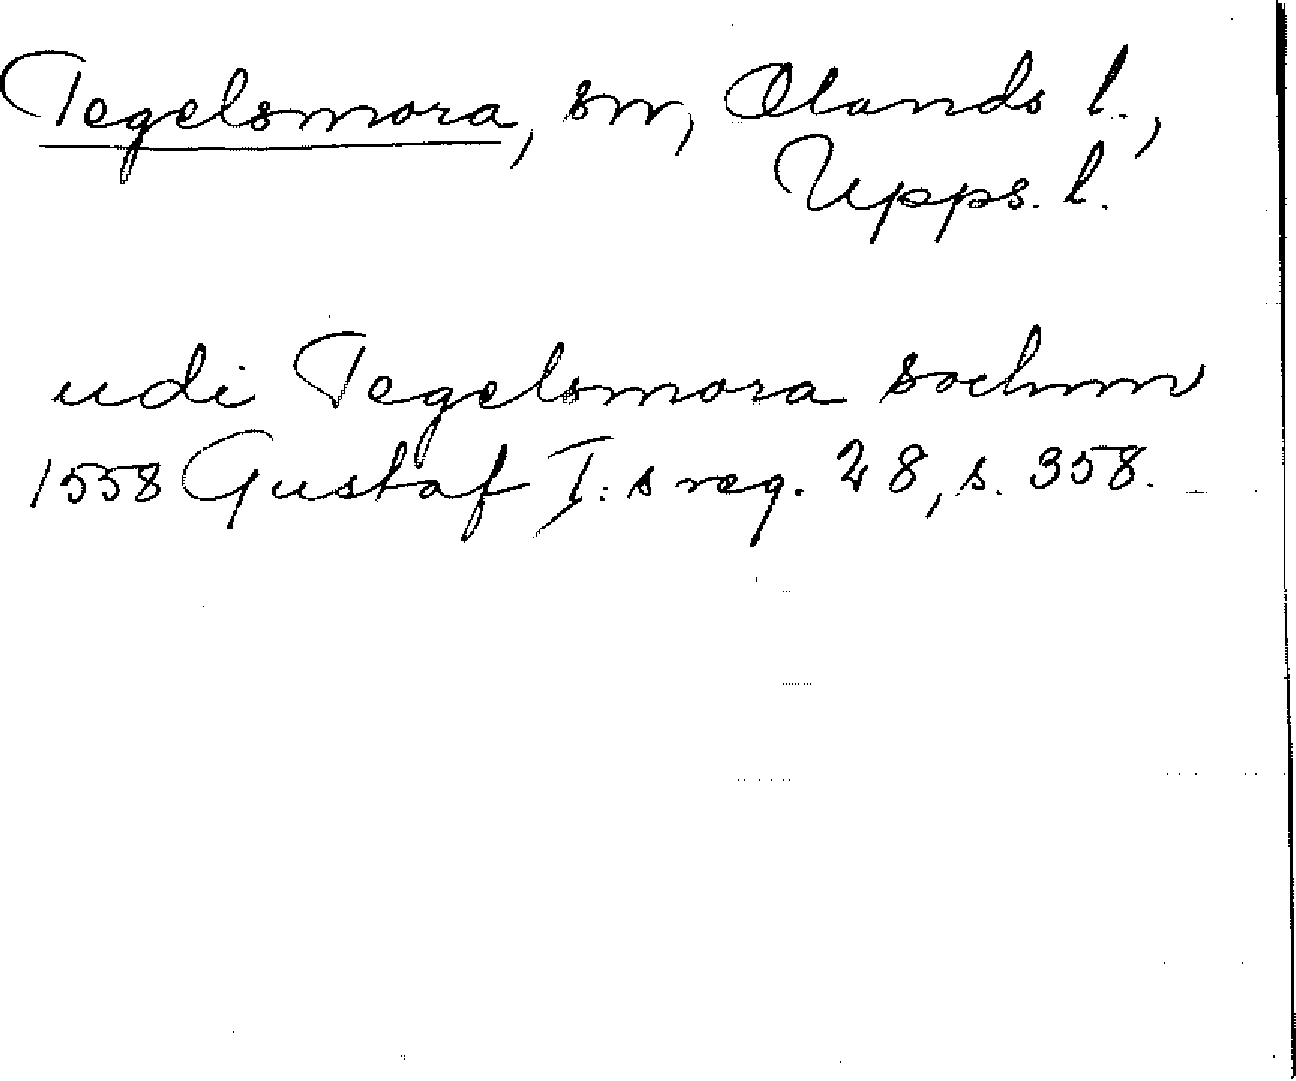 Tegelsmora, sn, Olands l.,
Upps. l.
udi Tegelsmora sochnn
1558 Gustaf I:s reg. 28, s. 358.